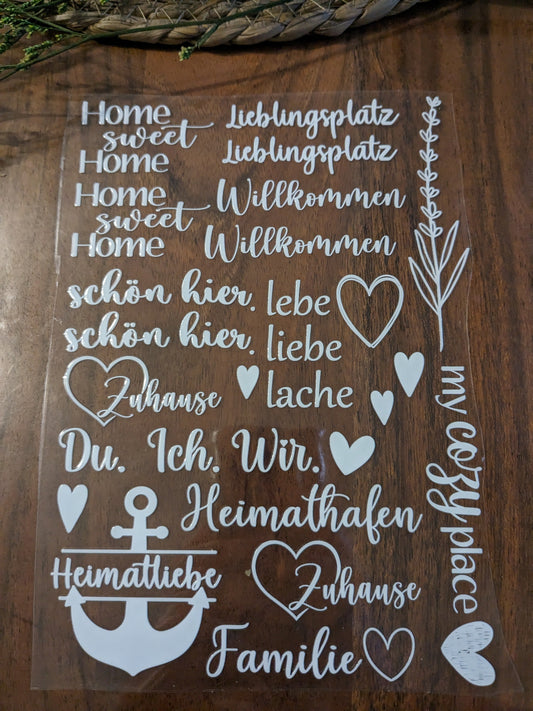 Home
sweet
Home
Lieblingsplatz
Lieblingsplatz
Home
sweet
Home
Willkommen
Willkommen
schön hier.
schön hier.
lebe
liebe
lache
Zuhause
Du. Ich. Wir.
Heimathafen
Heimatliebe
Zuhause
Familie
my cozy place